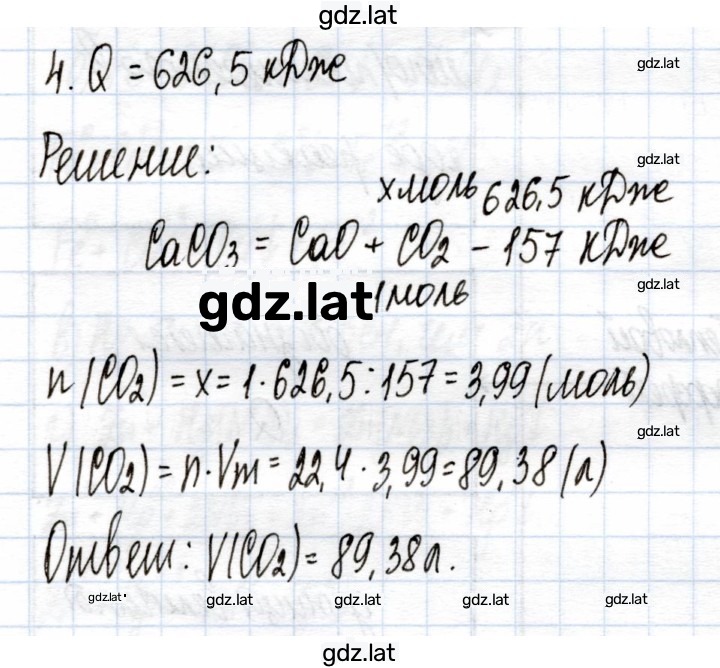 gdz.lat
4. Q = 626,5 кДж
gdz.lat
Решение:
gdz.lat
x моль 626,5 кДж
CaCO₃ = CaO + CO₂ - 157 кДж
gdz.lat
gdz.lat
1 моль
n(CO₂) = x = 1 · 626,5 : 157 = 3,99 (моль)
gdz.lat
V(CO₂) = n · Vm = 22,4 · 3,99 = 89,38 (л)
Ответ: V(CO₂) = 89,38 л.
gdz.lat gdz.lat gdz.lat gdz.lat gdz.lat
gdz.lat